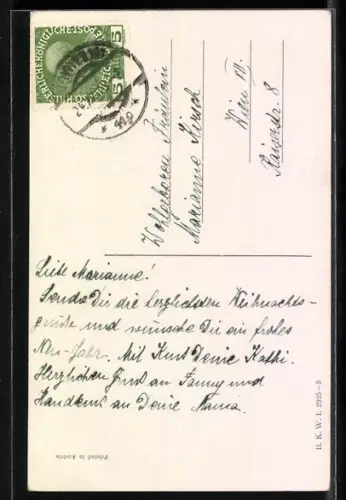 KAISERLICHE KÖNIGLICHE ÖSTERREICHISCHE POST
5 5
Wohlgeboren Fräulein
Marianne Hirsch
Wien IV.
Kaiserstr. 8
Liebe Marianne!
Sende Dir die herzlichsten Weihnachts-
grüße und wünsche Dir ein frohes
Neu-Jahr. Mit Kuss Deine Kathi.
Herzlichen Gruß an Fanny und
Handkuss an Deine Mama.
Printed in Austria
B. K. W. I. 2925-5